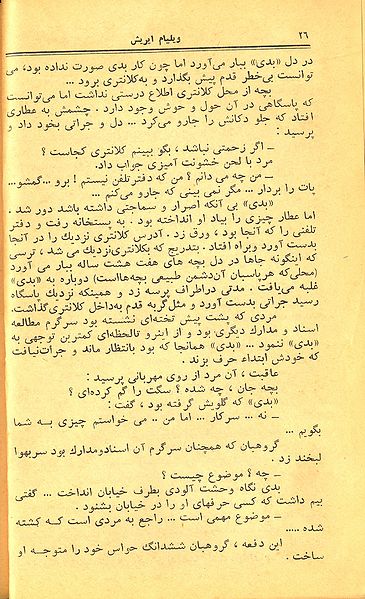 ۲۶
ویلیام ایریش
در دل «بدی» ببار می‌آورد اما چون کار بدی صورت نداده بود، می
توانست بی‌خطر قدم پیش بگذارد و به‌کلانتری برود ...
بچه از محل کلانتری اطلاع درستی نداشت اما می‌توانست
که پاسگاهی در آن حول و حوش وجود دارد . چشمش به عطاری
افتاد که جلو دکانش را جارو می‌کرد ... دل و جراتی بخود داد و
پرسید :
ـ اگر زحمتی نباشد ، بگو ببینم کلانتری کجاست ؟
مرد با لحن خشونت آمیزی جواب داد.
ـ من چه می دانم ؟ من که دفترتلفن نیستم ! برو ...گمشو...
پات را بردار ... مگر نمی بینی که جارو می‌کنم ...
«بدی» بی آنکه اصرار و سماجتی داشته باشد دور شد .
اما عطار چیزی را بیاد او انداخته بود . به بستخانه رفت و دفتر
تلفنی را که آنجا بود ، ورق زد . آدرس کلانتری نزدیك را در آنجا
بدست آورد وبراه افتاد . بتدریج که بکلانتری‌نزدیك می شد ، ترسی
که اینگونه جاها در دل بچه های هفت هشت ساله ببار می آورد
(محلی‌که هرپاسبان آن‌دشمن طبیعی بچه‌هااست) دوباره به «بدی»
غلبه می‌یافت . مدتی دراطراف پرسه زد و همینکه نزدیك پاسگاه
رسید جراتی بدست آورد و مثل‌گربه قدم به‌داخل کلانتری‌گذاشت.
مردی که پشت پیش تخته‌ای نشسته بود سرگرم مطالعه
اسناد و مدارك دیگری بود و از اینرو تالحظه‌ای کمترین توجهی به
«بدی» ننمود ... «بدی» همانجا که بود بانتظار ماند و جرات‌نیافت
که خودش ابتداء حرف بزند .
عاقبت ، آن مرد از روی مهربانی پرسید :
بچه جان ، چه شده ؟ سگت را گم کرده‌ای ؟
«بدی» که گلویش گرفته بود ، گفت :
ـ نه ... سرکار ... اما من .. می خواستم چیزی به شما
بگویم ...
گروهبان که همچنان سرگرم آن اسنادومدارك بود سربهوا
لبخند زد .
ـ چه ؟ موضوع چیست ؟
بدی نگاه وحشت آلودی بطرف خیابان انداخت ... گفتی
بیم داشت که کسی حرفهای او را در خیابان بشنود .
ـ موضوع مهمی است ... راجع به مردی است که کشته
شده .....
این دفعه ، گروهبان ششدانگ حواس خود را متوجه او
ساخت .